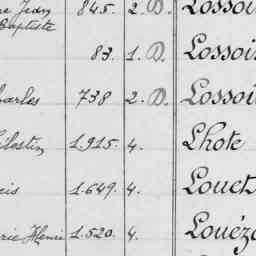 re Jean 845. 2. D. Lossoi
Baptiste
83. 1. D. Lossois
harles 738 2. D. Lossoi
élestin 1.915. 4. Lhote
cis 1.649. 4. Louet
rie Henri 1.520. 4. Louéz